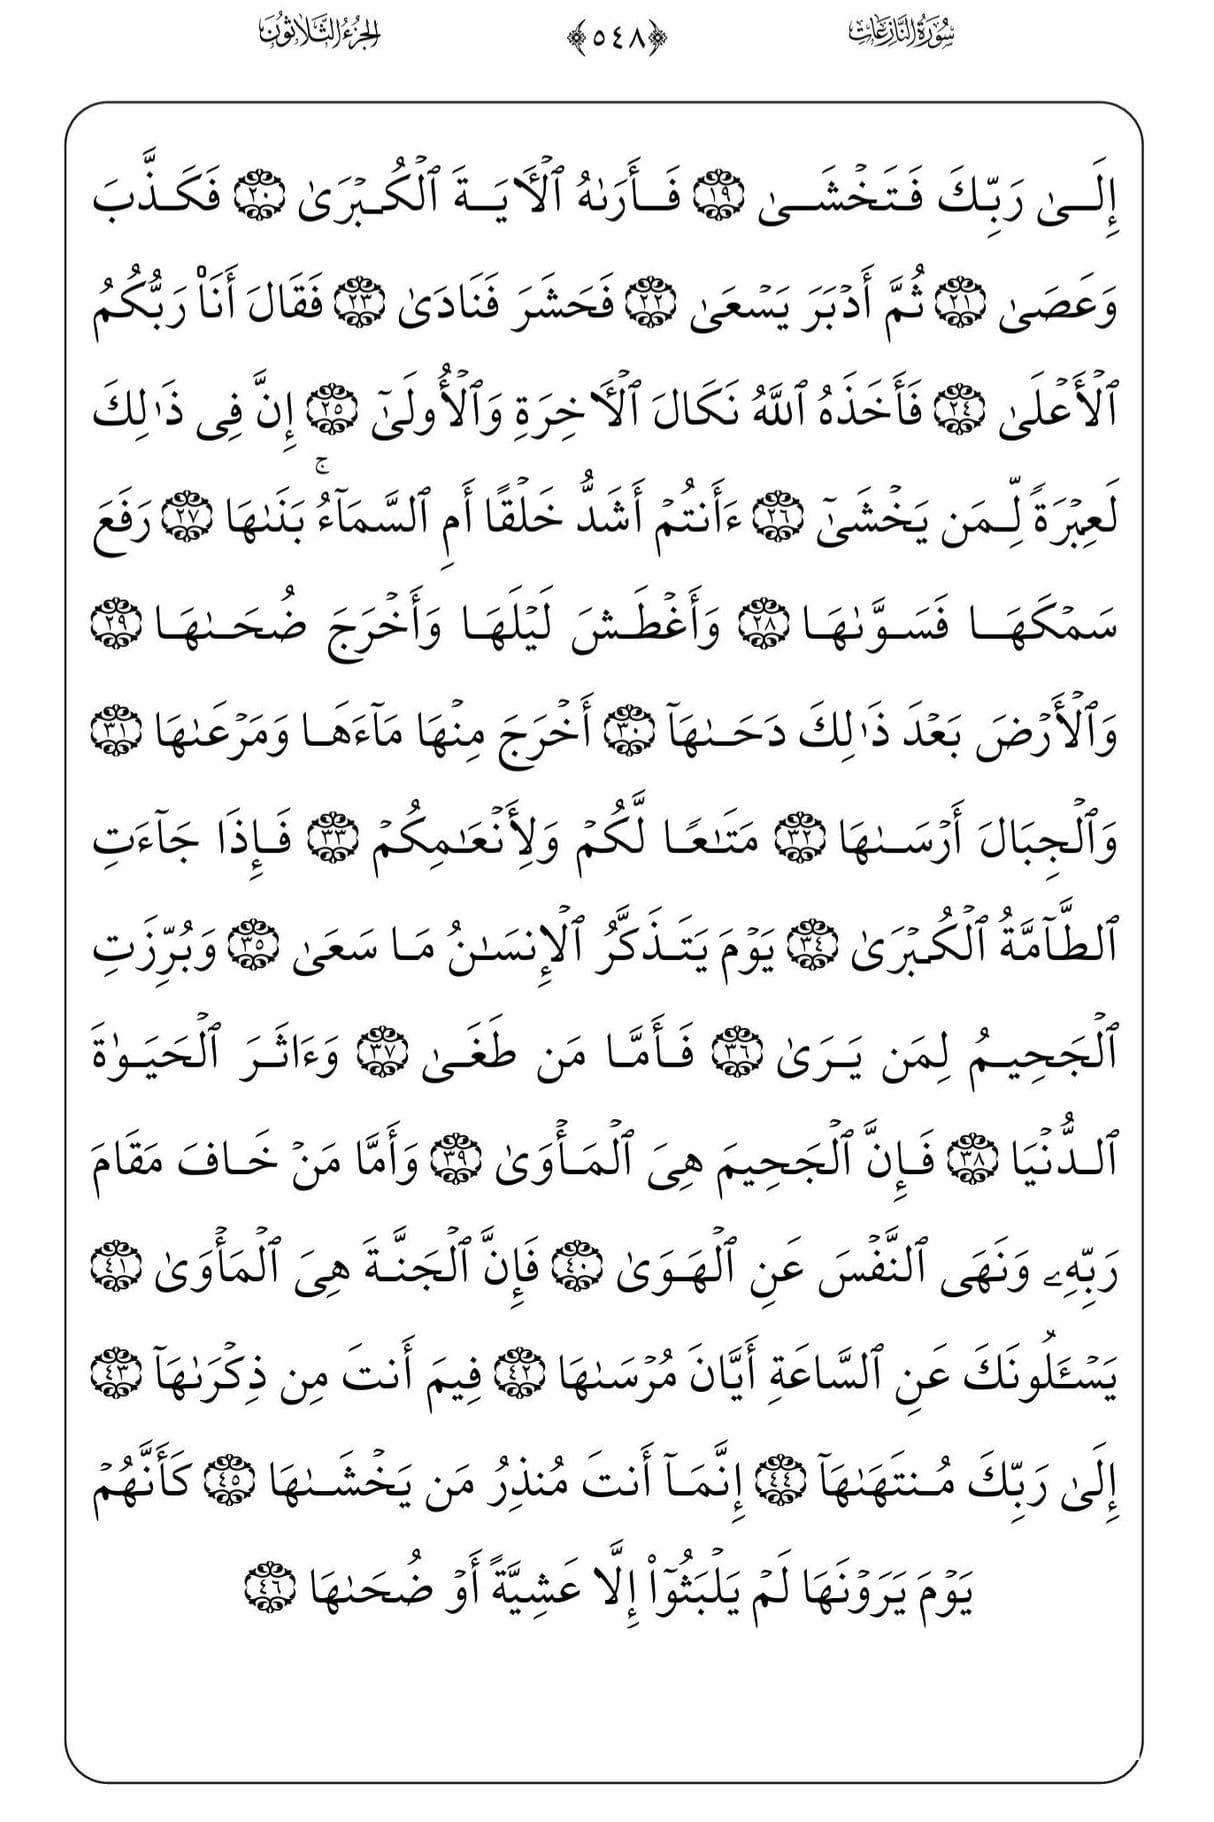 سُورَةُ النَّازِعَاتِ ﴿٥٤٨﴾ الجُزْءُ الثَّلَاثُونَ
إِلَىٰ رَبِّكَ فَتَخْشَىٰ ١٩ فَأَرَىٰهُ ٱلْـَٔايَةَ ٱلْكُبْرَىٰ ٢٠ فَكَذَّبَ
وَعَصَىٰ ٢١ ثُمَّ أَدْبَرَ يَسْعَىٰ ٢٢ فَحَشَرَ فَنَادَىٰ ٢٣ فَقَالَ أَنَا۠ رَبُّكُمُ
ٱلْأَعْلَىٰ ٢٤ فَأَخَذَهُ ٱللَّهُ نَكَالَ ٱلْـَٔاخِرَةِ وَٱلْأُولَىٰٓ ٢٥ إِنَّ فِى ذَٰلِكَ
لَعِبْرَةً لِّمَن يَخْشَىٰٓ ٢٦ ءَأَنتُمْ أَشَدُّ خَلْقًا أَمِ ٱلسَّمَآءُ ۚ بَنَىٰهَا ٢٧ رَفَعَ
سَمْكَهَا فَسَوَّىٰهَا ٢٨ وَأَغْطَشَ لَيْلَهَا وَأَخْرَجَ ضُحَىٰهَا ٢٩
وَٱلْأَرْضَ بَعْدَ ذَٰلِكَ دَحَىٰهَآ ٣٠ أَخْرَجَ مِنْهَا مَآءَهَا وَمَرْعَىٰهَا ٣١
وَٱلْجِبَالَ أَرْسَىٰهَا ٣٢ مَتَٰعًا لَّكُمْ وَلِأَنْعَٰمِكُمْ ٣٣ فَإِذَا جَآءَتِ
ٱلطَّآمَّةُ ٱلْكُبْرَىٰ ٣٤ يَوْمَ يَتَذَكَّرُ ٱلْإِنسَٰنُ مَا سَعَىٰ ٣٥ وَبُرِّزَتِ
ٱلْجَحِيمُ لِمَن يَرَىٰ ٣٦ فَأَمَّا مَن طَغَىٰ ٣٧ وَءَاثَرَ ٱلْحَيَوٰةَ
ٱلدُّنْيَا ٣٨ فَإِنَّ ٱلْجَحِيمَ هِىَ ٱلْمَأْوَىٰ ٣٩ وَأَمَّا مَنْ خَافَ مَقَامَ
رَبِّهِۦ وَنَهَى ٱلنَّفْسَ عَنِ ٱلْهَوَىٰ ٤٠ فَإِنَّ ٱلْجَنَّةَ هِىَ ٱلْمَأْوَىٰ ٤١
يَسْـَٔلُونَكَ عَنِ ٱلسَّاعَةِ أَيَّانَ مُرْسَىٰهَا ٤٢ فِيمَ أَنتَ مِن ذِكْرَىٰهَآ ٤٣
إِلَىٰ رَبِّكَ مُنتَهَىٰهَآ ٤٤ إِنَّمَآ أَنتَ مُنذِرُ مَن يَخْشَىٰهَا ٤٥ كَأَنَّهُمْ
يَوْمَ يَرَوْنَهَا لَمْ يَلْبَثُوٓا۟ إِلَّا عَشِيَّةً أَوْ ضُحَىٰهَا ٤٦